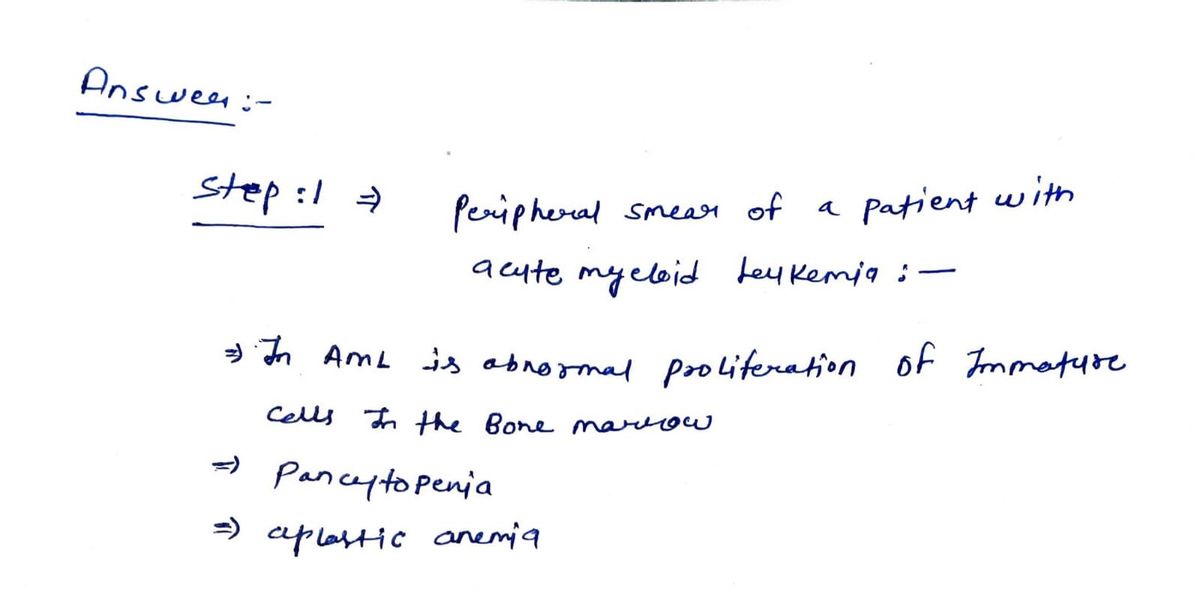 Answer :-
Step : 1 ⇒ Peripheral smear of a patient with
acute myeloid Leukemia : —
⇒ In AML is abnormal proliferation of Immature
cells In the Bone marrow
⇒ Pancytopenia
⇒ aplastic anemia